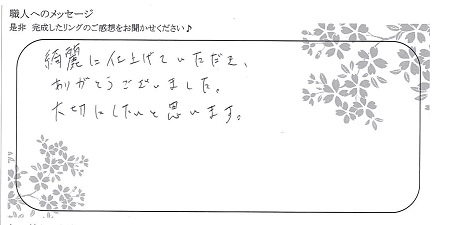 職人へのメッセージ
是非 完成したリングのご感想をお聞かせください♪
綺麗に仕上げていただき、
ありがとうございました。
大切にしたいと思います。